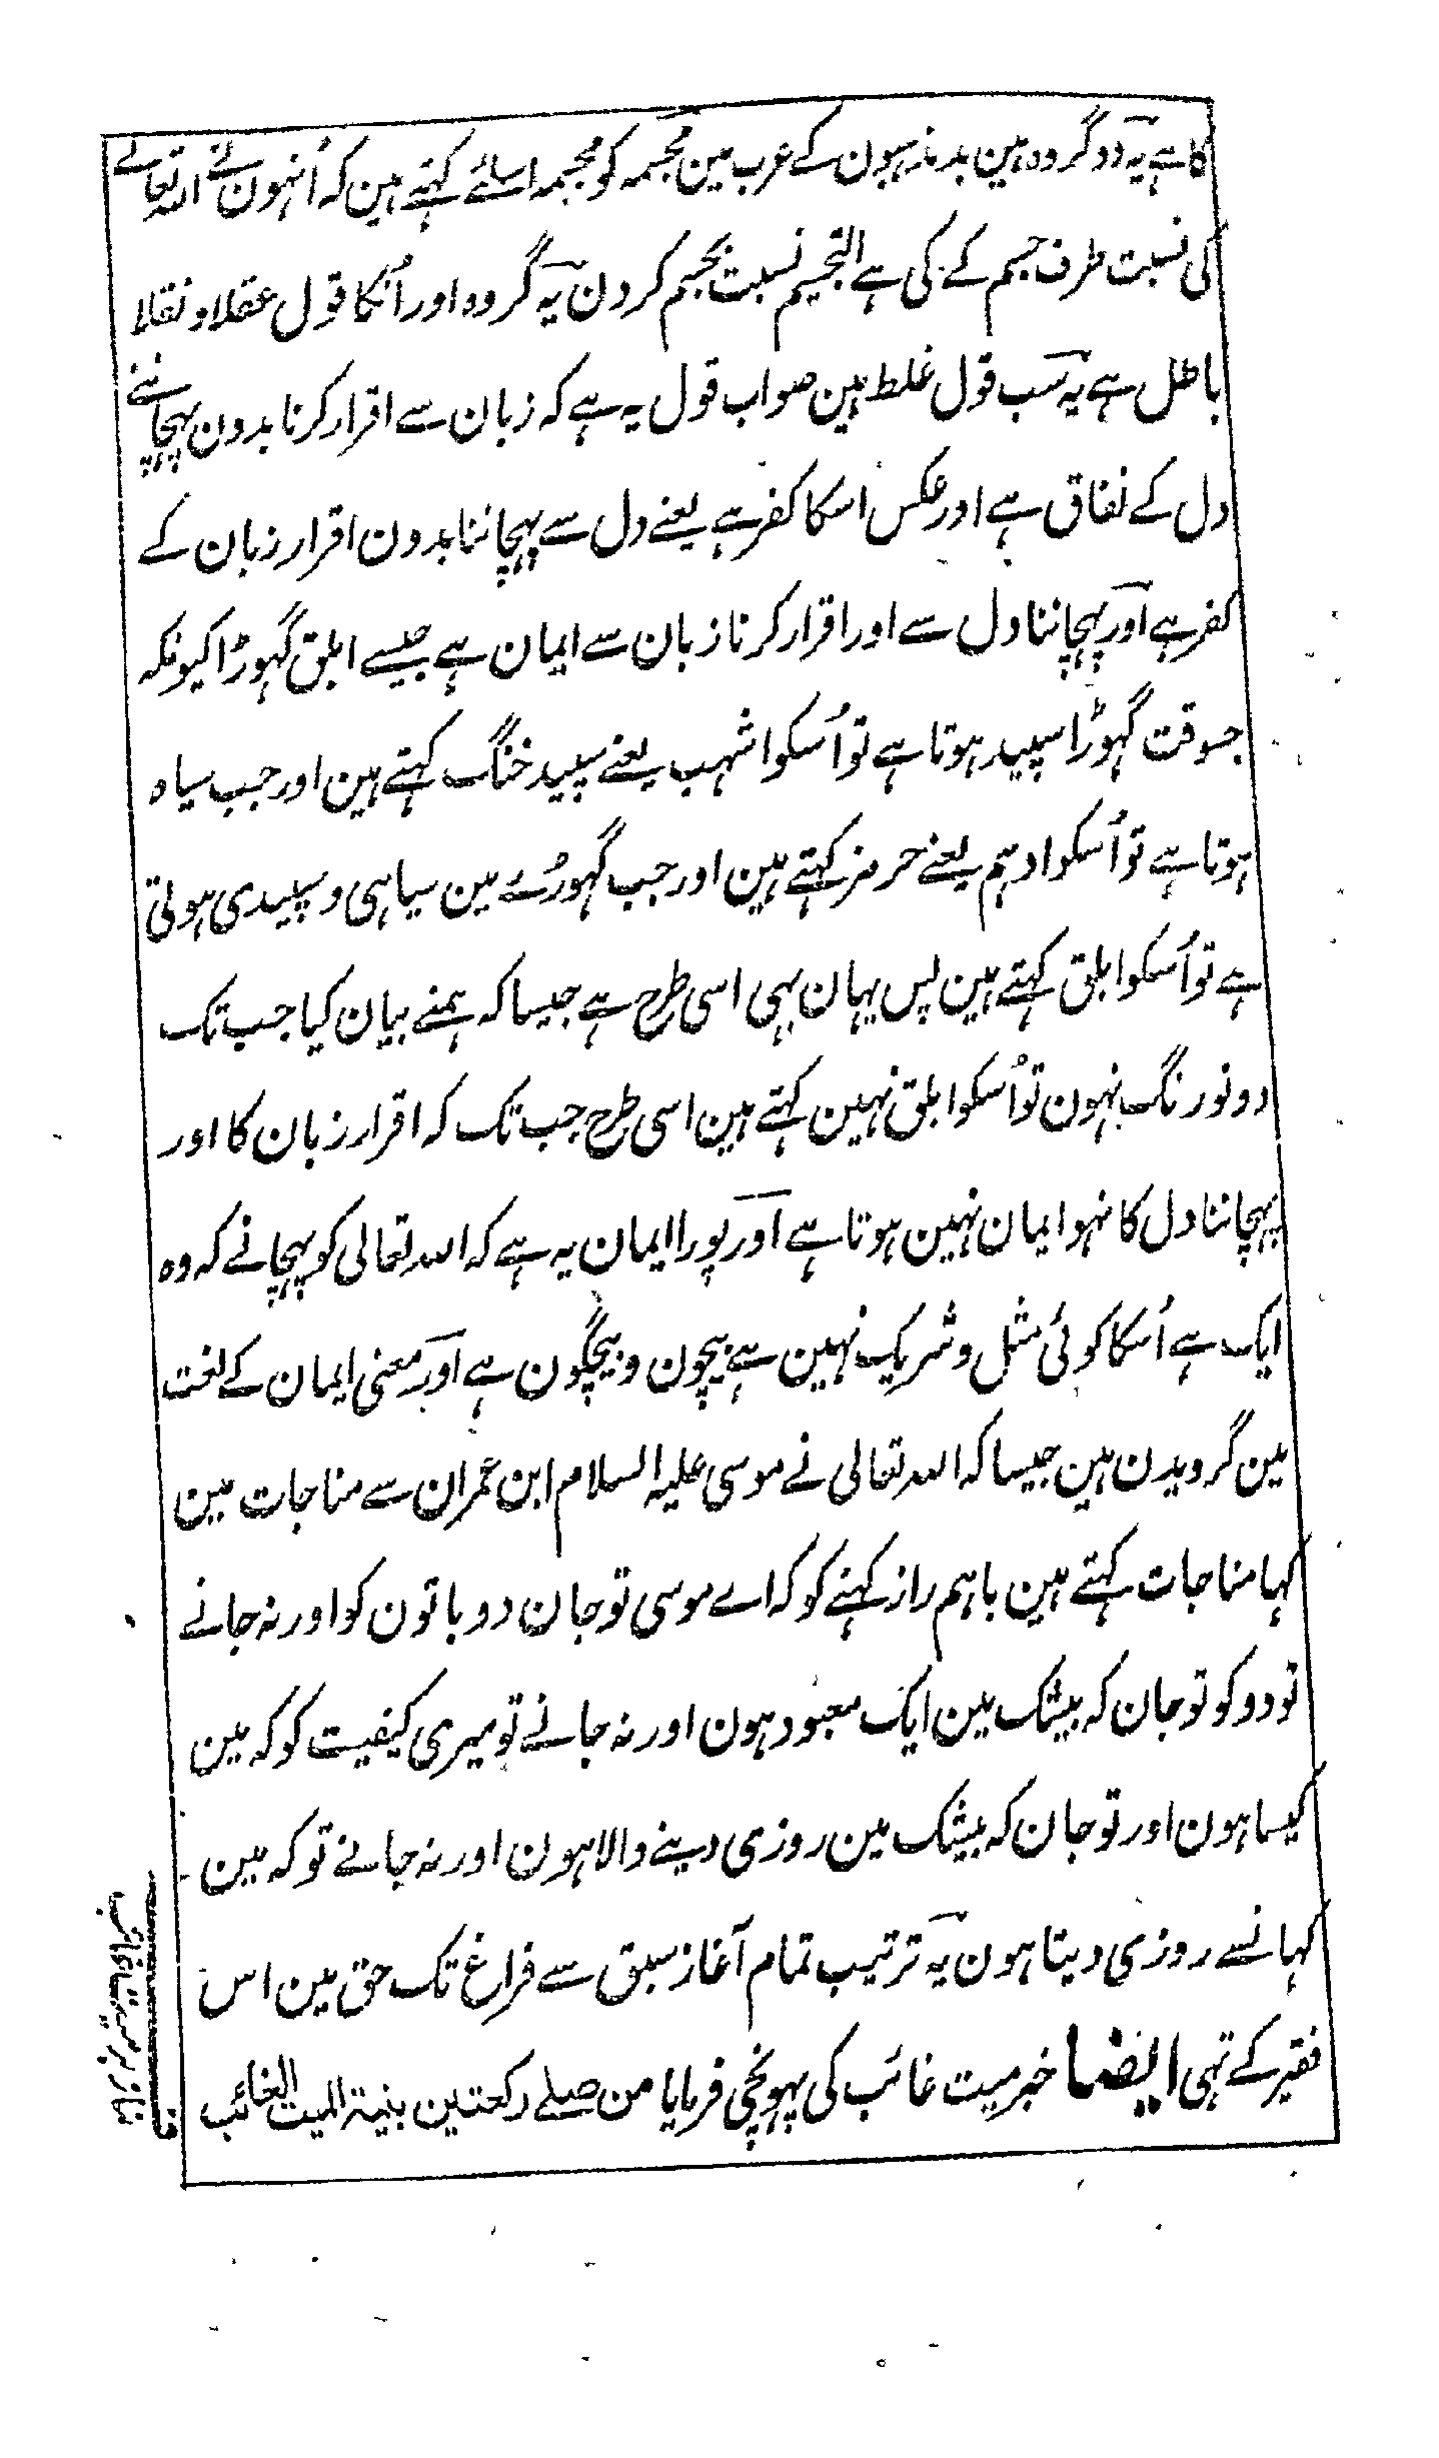 کا ہے یہ دو گروہ ہین بدمذہبون کے عرب مین مجسمہ کو مجسمہ اسلئے کہتے ہین کہ اُنہون نے اللہ تعالے
کی نسبت طرف جسم کے کی ہے التجسیم نسبت بجسم کردن یہ گروہ اور اُنکا قول عقلا و نقلا
باطل ہے یہ سب قول غلط ہین صواب قول یہ ہے کہ زبان سے اقرار کرنا بدون پہچاننے
دل کے نفاق ہے اور عکس اسکا کفر ہے یعنے دل سے پہچاننا بدون اقرار زبان کے
کفر ہے اور پہچاننا دل سے اور اقرار کرنا زبان سے ایمان ہے جیسے ابلق گہوڑا کیونکہ
جسوقت گہوڑا سپید ہوتا ہے تو اُسکو اشہب یعنے سپید خنگ کہتے ہین اور جب سیاہ
ہوتا ہے تو اُسکو ادہم یعنے خرمز کہتے ہین اور جب گہوڑے مین سیاہی و سپیدی ہوتی
ہے تو اُسکو ابلق کہتے ہین پس یہان بہی اسی طرح ہے جیسا کہ ہمنے بیان کیا جب تک
دونو رنگ نہون تو اُسکو ابلق نہین کہتے ہین اسی طرح جب تک کہ اقرار زبان کا اور
پہچاننا دل کا نہو ایمان نہین ہوتا ہے اور پورا ایمان یہ ہے کہ اللہ تعالی کو پہچانے کہ وہ
ایک ہے اُسکا کوئی مثل و شریک نہین ہے بیچون و بیچگون ہے اور معنی ایمان کے لغت
مین گرویدن ہین جیسا کہ اللہ تعالی نے موسی علیہ السلام ابن عمران سے مناجات مین
کہا مناجات کہتے ہین باہم راز کہنے کو کہ اے موسی تو جان دو باتون کو اور نہ جانے
تو دو کو تو جان کہ بیشک مین ایک معبود ہون اور نہ جانے تو میری کیفیت کو کہ مین
کیسا ہون اور تو جان کہ بیشک مین روزی دینے والا ہون اور نہ جانے تو کہ مین
کہانسے روزی دیتا ہون یہ ترتیب تمام آغاز سبق سے فراغ تک حق مین اس
فقیر کے تہی ایضا خبر میت غائب کی پہونچی فرمایا من صلے رکعتین بنیۃ المیت الغائب